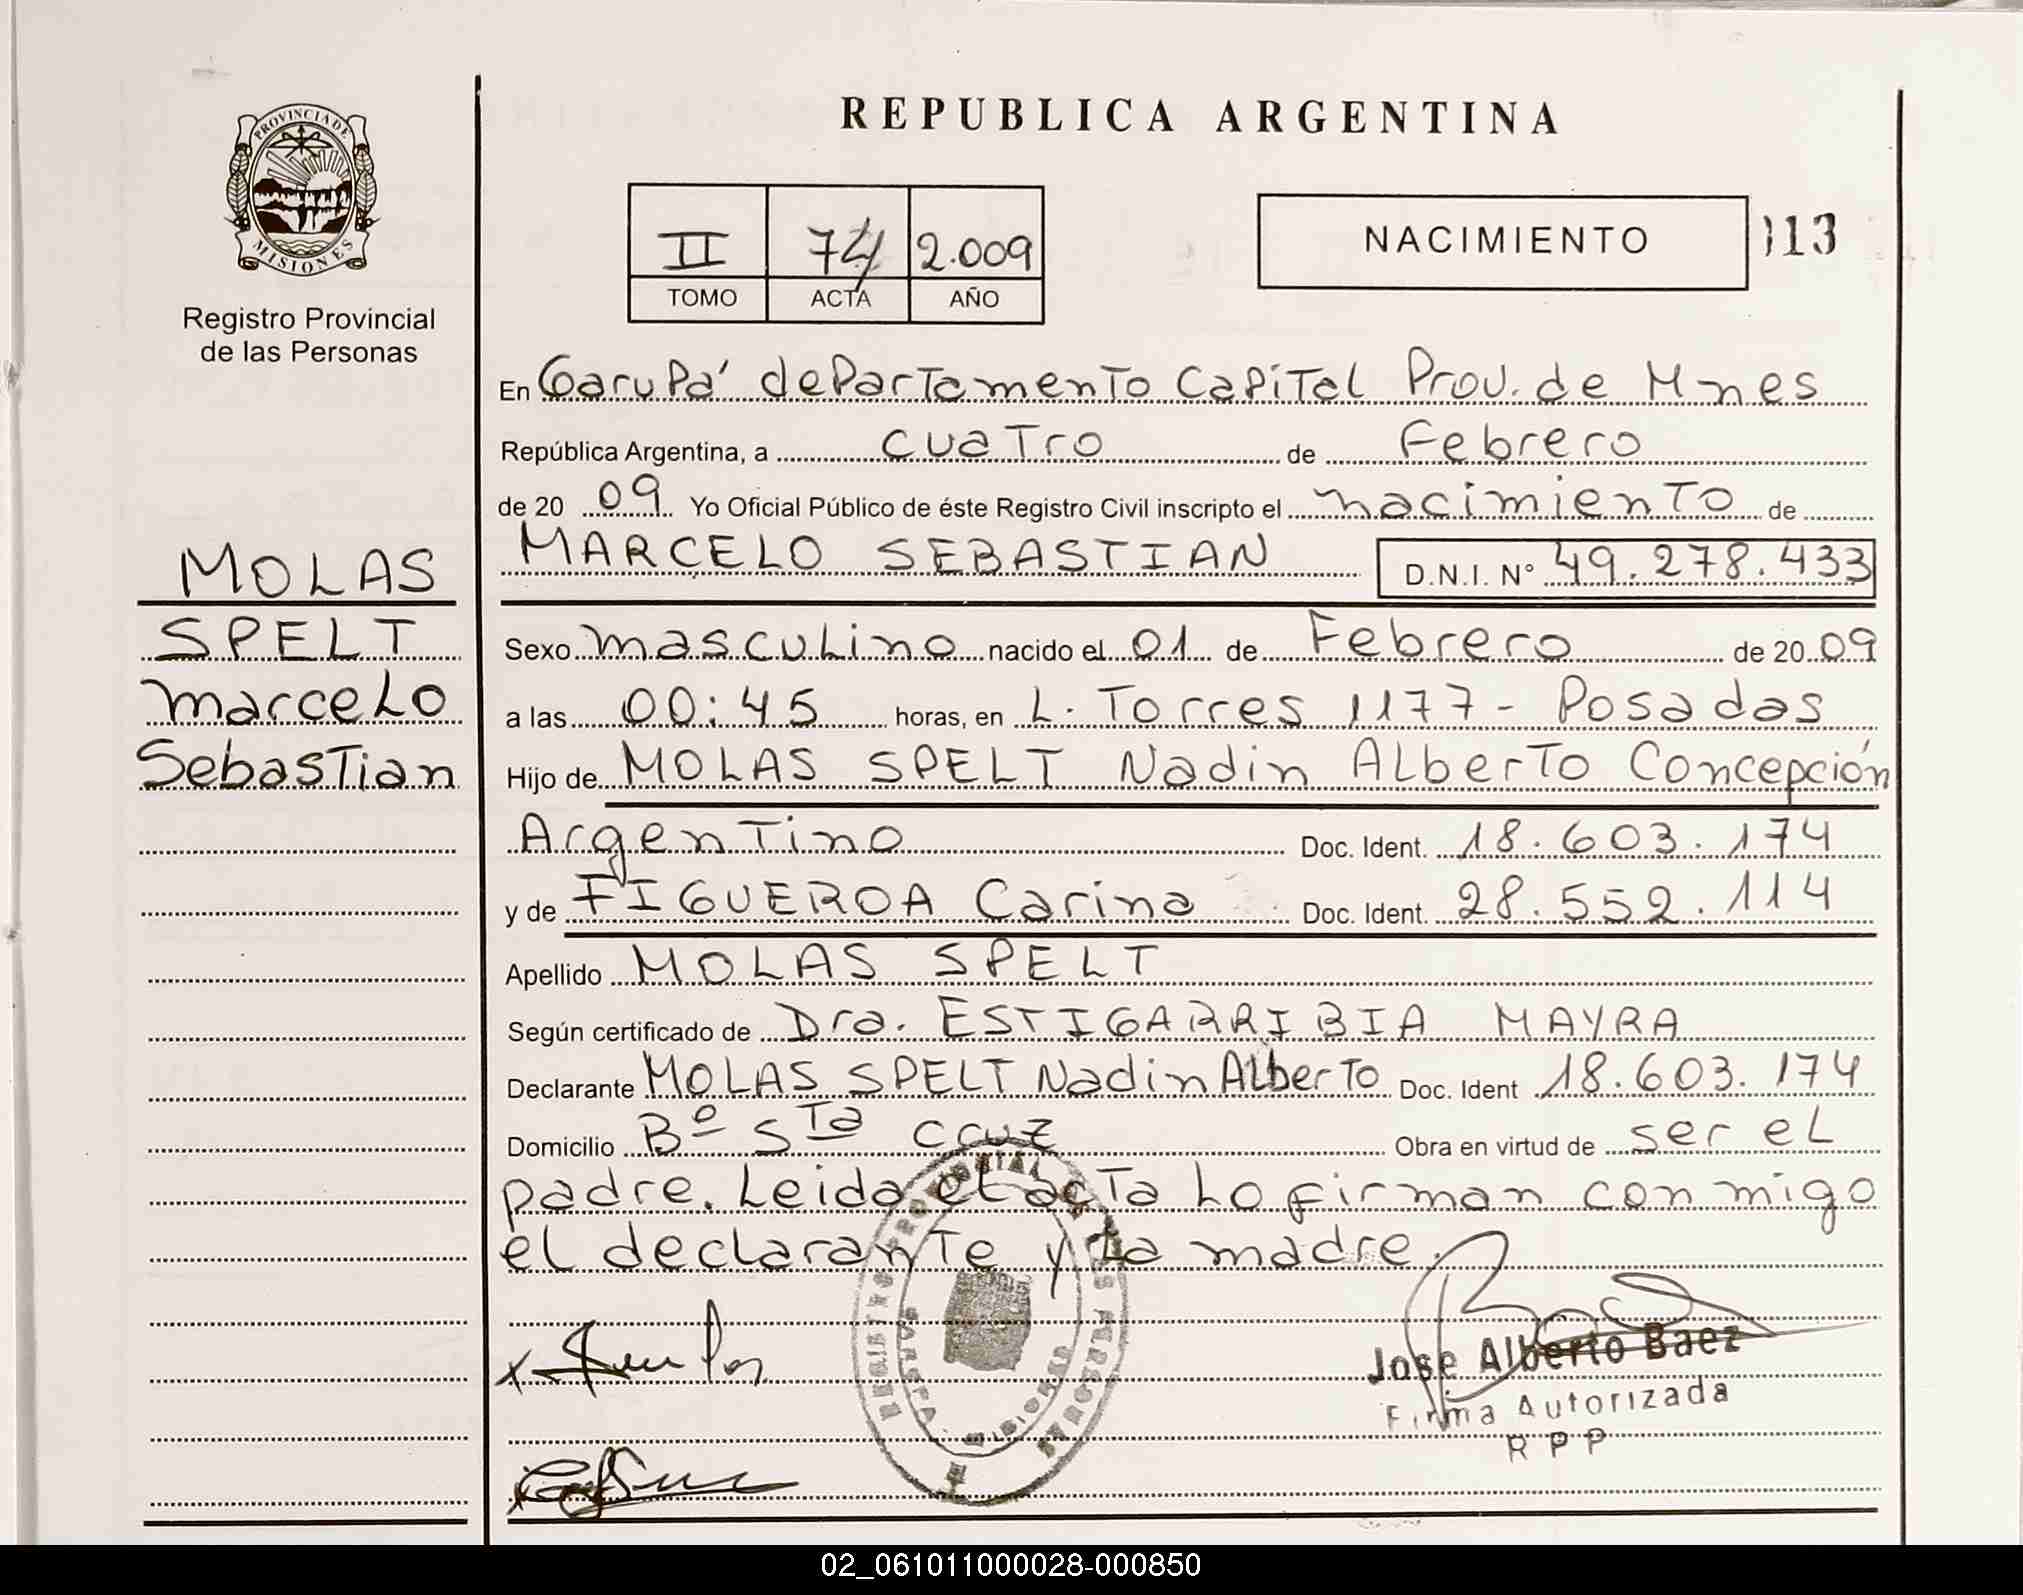 REPUBLICA ARGENTINA
PROVINCIA DE
MISIONES
Registro Provincial
de las Personas
II 74 2.009
TOMO ACTA AÑO
NACIMIENTO 113
En Garupá departamento Capital Prov. de Mnes
República Argentina, a cuatro de Febrero
de 20 09 Yo Oficial Público de éste Registro Civil inscripto el nacimiento de
MARCELO SEBASTIAN D.N.I. N° 49.278.433
MOLAS
SPELT
marcelo
Sebastian
Sexo masculino nacido el 01 de Febrero de 20 09
a las 00:45 horas, en L. Torres 1177 - Posadas
Hijo de MOLAS SPELT Nadin Alberto Concepción
Argentino Doc. Ident. 18.603.174
y de FIGUEROA Carina Doc. Ident. 28.552.114
Apellido MOLAS SPELT
Según certificado de Dra. ESTIGARRIBIA MAYRA
Declarante MOLAS SPELT Nadin Alberto Doc. Ident 18.603.174
Domicilio Bº Sta cruz Obra en virtud de ser el
padre. Leida el acta lo firman conmigo
el declarante y la madre.
REGISTRO PROVINCIAL DE LAS PERSONAS
GARUPA - MISIONES
Jose Alberto Baez
Firma Autorizada
R P P
02_061011000028-000850